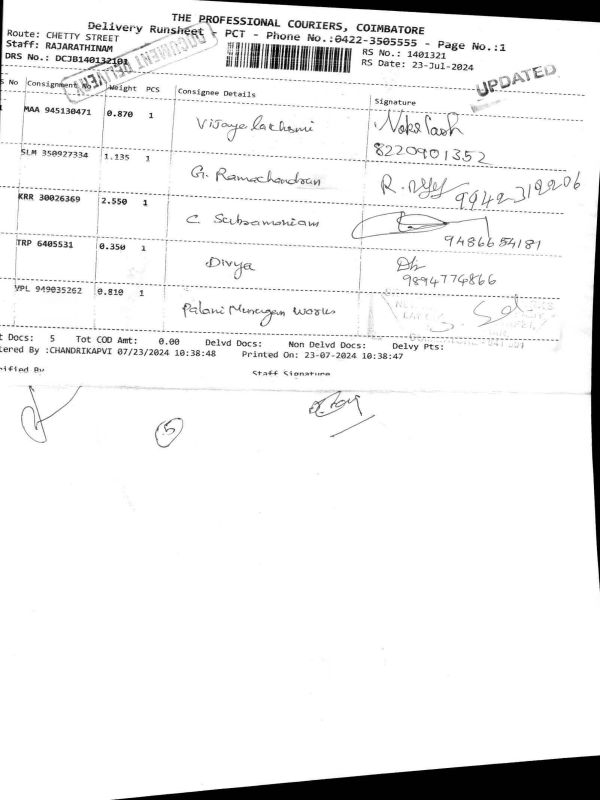 THE PROFESSIONAL COURIERS, COIMBATORE
Delivery Runsheet - PCT - Phone No.:0422-3505555 - Page No.:1
Route: CHETTY STREET
RS No.: 1401321
Staff: RAJARATHINAM
RS Date: 23-Jul-2024
DRS No.: DCJB140132101
DOCUMENT DELIVERY
UPDATED
S No Consignment No Weight PCS Consignee Details Signature
MAA 945130471 0.870 1 Vijaya lachsmi
8220901352
SLM 350927334 1.135 1 G. Ramachandran R.
KRR 30026369 2.550 1 C. Subramoniam
9486654181
TRP 6405531 0.350 1 Divya
9894774866
VPL 949035262 0.810 1 Palani Murugan Works
t Docs: 5 Tot COD Amt: 0.00 Delvd Docs: Non Delvd Docs: Delvy Pts:
tered By :CHANDRIKAPVI 07/23/2024 10:38:48 Printed On: 23-07-2024 10:38:47
ified By Staff Signature
5